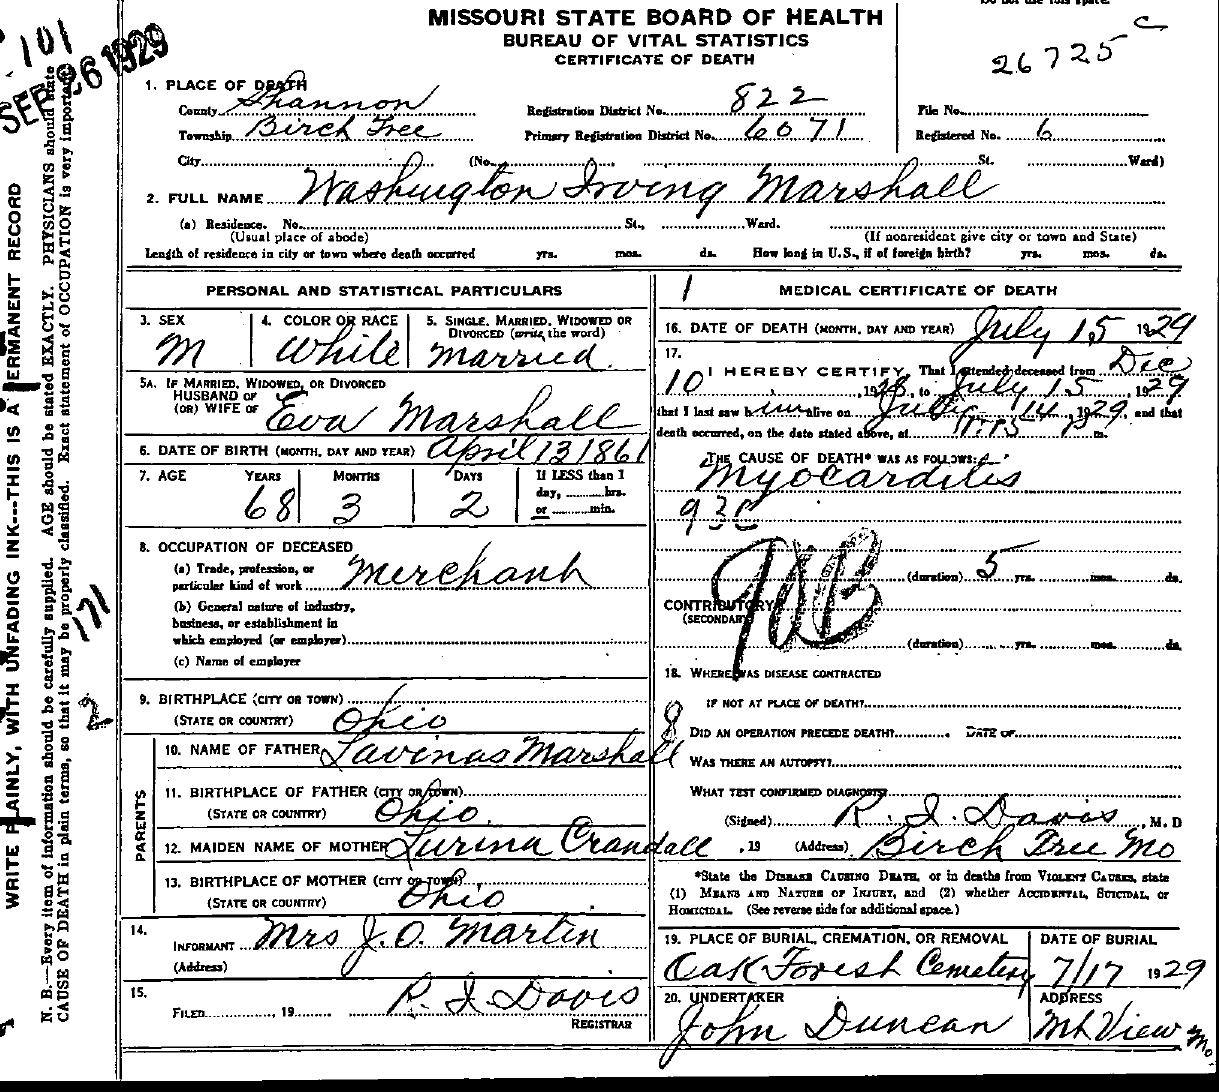 MISSOURI STATE BOARD OF HEALTH
BUREAU OF VITAL STATISTICS
CERTIFICATE OF DEATH
26725 C
101
SEP 26 1929
1. PLACE OF DEATH
County Shannon Registration District No. 822 File No.
Township Birch Tree Primary Registration District No. 6071 Registered No. 6
City (No. St. Ward)
2. FULL NAME Washington Irving Marshall
(a) Residence. No. St., Ward.
(Usual place of abode) (If nonresident give city or town and State)
Length of residence in city or town where death occurred yrs. mos. ds. How long in U.S., if of foreign birth? yrs. mos. ds.
PERSONAL AND STATISTICAL PARTICULARS
3. SEX 4. COLOR OR RACE 5. SINGLE, MARRIED, WIDOWED OR
DIVORCED (write the word)
M White Married
5A. IF MARRIED, WIDOWED, OR DIVORCED
HUSBAND OF
(OR) WIFE OF Eva Marshall
6. DATE OF BIRTH (MONTH, DAY AND YEAR) April 13 1861
7. AGE YEARS MONTHS DAYS If LESS than 1
day, hrs.
or min.
68 3 2
8. OCCUPATION OF DECEASED
(a) Trade, profession, or
particular kind of work Merchant
(b) General nature of industry,
business, or establishment in
which employed (or employer)
(c) Name of employer
9. BIRTHPLACE (CITY OR TOWN)
(STATE OR COUNTRY) Ohio
PARENTS
10. NAME OF FATHER Lavinas Marshall
11. BIRTHPLACE OF FATHER (CITY OR TOWN)
(STATE OR COUNTRY) Ohio
12. MAIDEN NAME OF MOTHER Lurina Crandall
13. BIRTHPLACE OF MOTHER (CITY OR TOWN)
(STATE OR COUNTRY) Ohio
14.
INFORMANT Mrs J. O. Martin
(Address)
15.
FILED , 19 R. I Davis
REGISTRAR
1 MEDICAL CERTIFICATE OF DEATH
16. DATE OF DEATH (MONTH, DAY AND YEAR) July 15 1929
17.
I HEREBY CERTIFY, That I attended deceased from Dec
10, 1928, to July 15, 1929
that I last saw him alive on July 14, 1929, and that
death occurred, on the date stated above, at m.
THE CAUSE OF DEATH* WAS AS FOLLOWS:
Myocarditis
93C
(duration) 5 yrs. mos. ds.
CONTRIBUTORY
(SECONDARY)
(duration) yrs. mos. ds.
18. WHERE WAS DISEASE CONTRACTED
IF NOT AT PLACE OF DEATH?
8 DID AN OPERATION PRECEDE DEATH? DATE OF
WAS THERE AN AUTOPSY?
WHAT TEST CONFIRMED DIAGNOSIS?
(Signed) R. I Davis, M. D
, 19 (Address) Birch Tree Mo
*State the DISEASE CAUSING DEATH, or in deaths from VIOLENT CAUSES, state
(1) MEANS AND NATURE OF INJURY, and (2) whether ACCIDENTAL, SUICIDAL, or
HOMICIDAL. (See reverse side for additional space.)
19. PLACE OF BURIAL, CREMATION, OR REMOVAL DATE OF BURIAL
Oak Forest Cemetery 7/17 1929
20. UNDERTAKER ADDRESS
John Duncan Mt View Mo
WRITE PLAINLY, WITH UNFADING INK---THIS IS A PERMANENT RECORD
N. B.—Every item of information should be carefully supplied. AGE should be stated EXACTLY. PHYSICIANS should state
CAUSE OF DEATH in plain terms, so that it may be properly classified. Exact statement of OCCUPATION is very important.
171
2